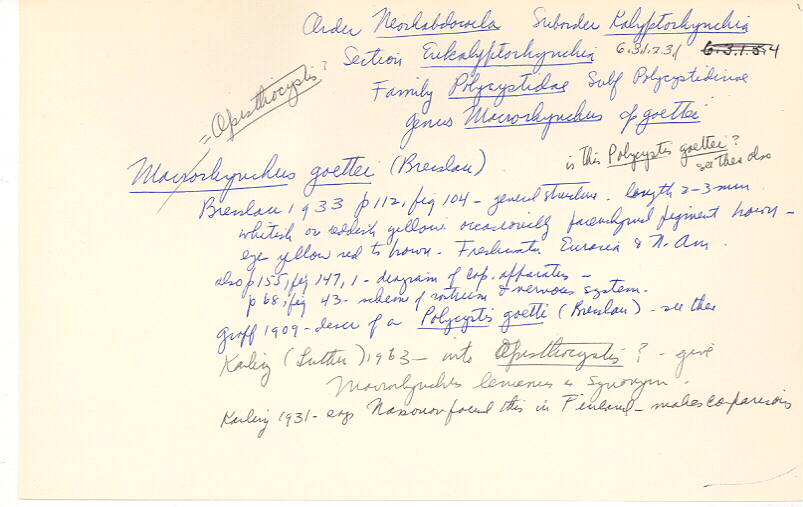 Order Neorhabdocoela Suborder Kalyptorhynchia
Section Eukalyptorhynchia 6.31.231 6.3.1.5.4
Family Polycystidae Subf Polycystidinae
= Opisthocystis?
genus Macrorhynchus sp goettei
Macrorhynchus goettei (Bresslau) is this Polycystis goettei?
see there also
Bresslau 1933 p 112, fig 104 - general structure. length 2-3 mm
whitish or reddish yellow occasionally parenchymal pigment brown -
eyes yellow red to brown. Freshwater Eurasia & N. Am.
also p 155, fig 147, 1 - diagram of cop. apparatus -
p 68, fig 43 - schem of rostrum & nervous system.
Graff 1909 - descr of a Polycystis goettei (Bresslau) - see there
Karling (Luther) 1963 - into Opisthocystis? - give
Macrorhynchus lemanus as synonym.
Karling 1931 - says Nasonov found this in Finland - makes comparisons